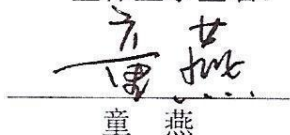 童燕
童 燕